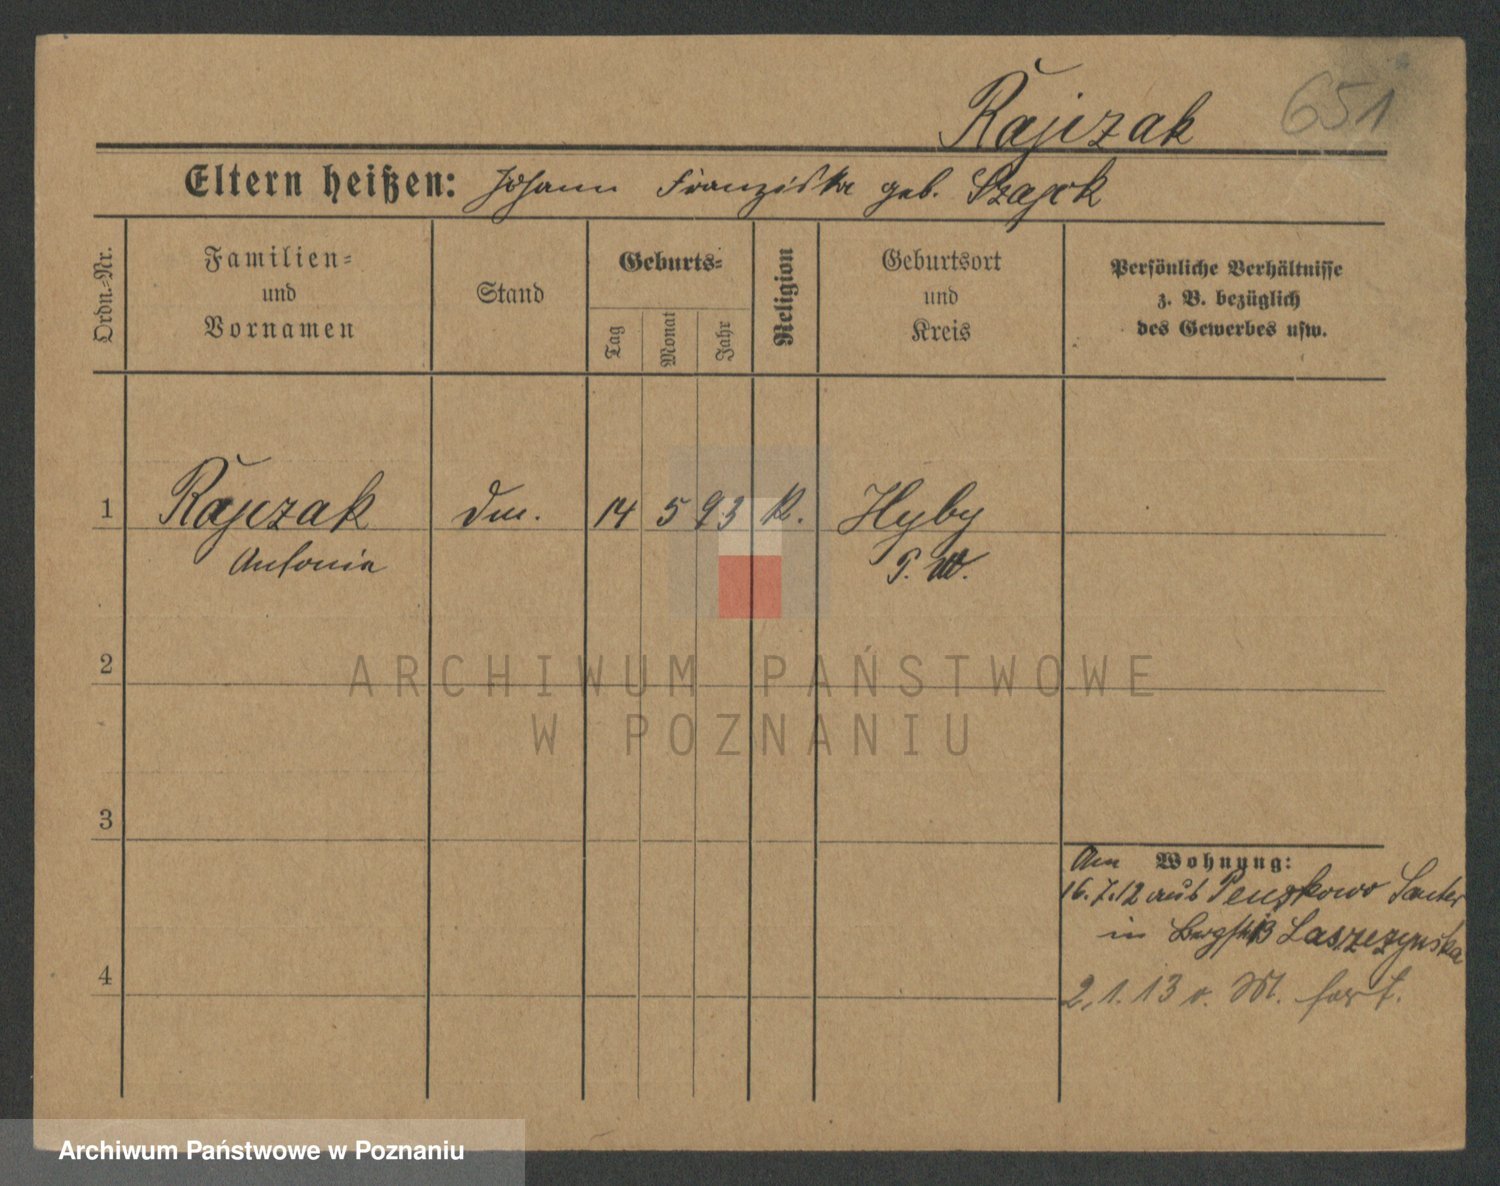 Rajczak 651
Eltern heißen: Johann Franziska geb. Szajek
Ordn.-Nr.
Familien-
und
Vornamen
Stand
Geburts-
Tag
Monat
Jahr
Religion
Geburtsort
und
Kreis
Persönliche Verhältnisse
z. B. bezüglich
des Gewerbes usw.
1 Rajczak 14 5 93 K. Hyby
Antonia P. W.
2
3
4
Am Wohnung:
16.7.12 aus Penskowo
in Bergstr 13 Laszczynska
2.1.13 v. M. fort.
ARCHIWUM PAŃSTWOWE
W POZNANIU
Archiwum Państwowe w Poznaniu